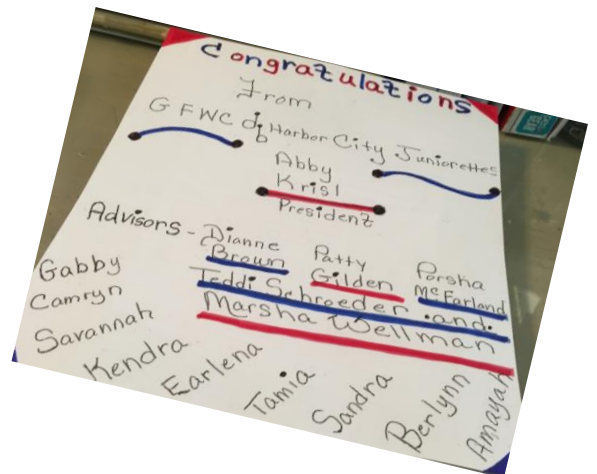 Congratulations
From
GFWC of Harbor City Juniorettes
Abby
Krisl
President
Advisors - Dianne Brown Patty Gilden Porsha McFarland
Teddi Schroeder and
Marsha Wellman
Gabby
Camryn
Savannah
Kendra
Earlena
Tamia
Sandra
Berlynn
Amayah